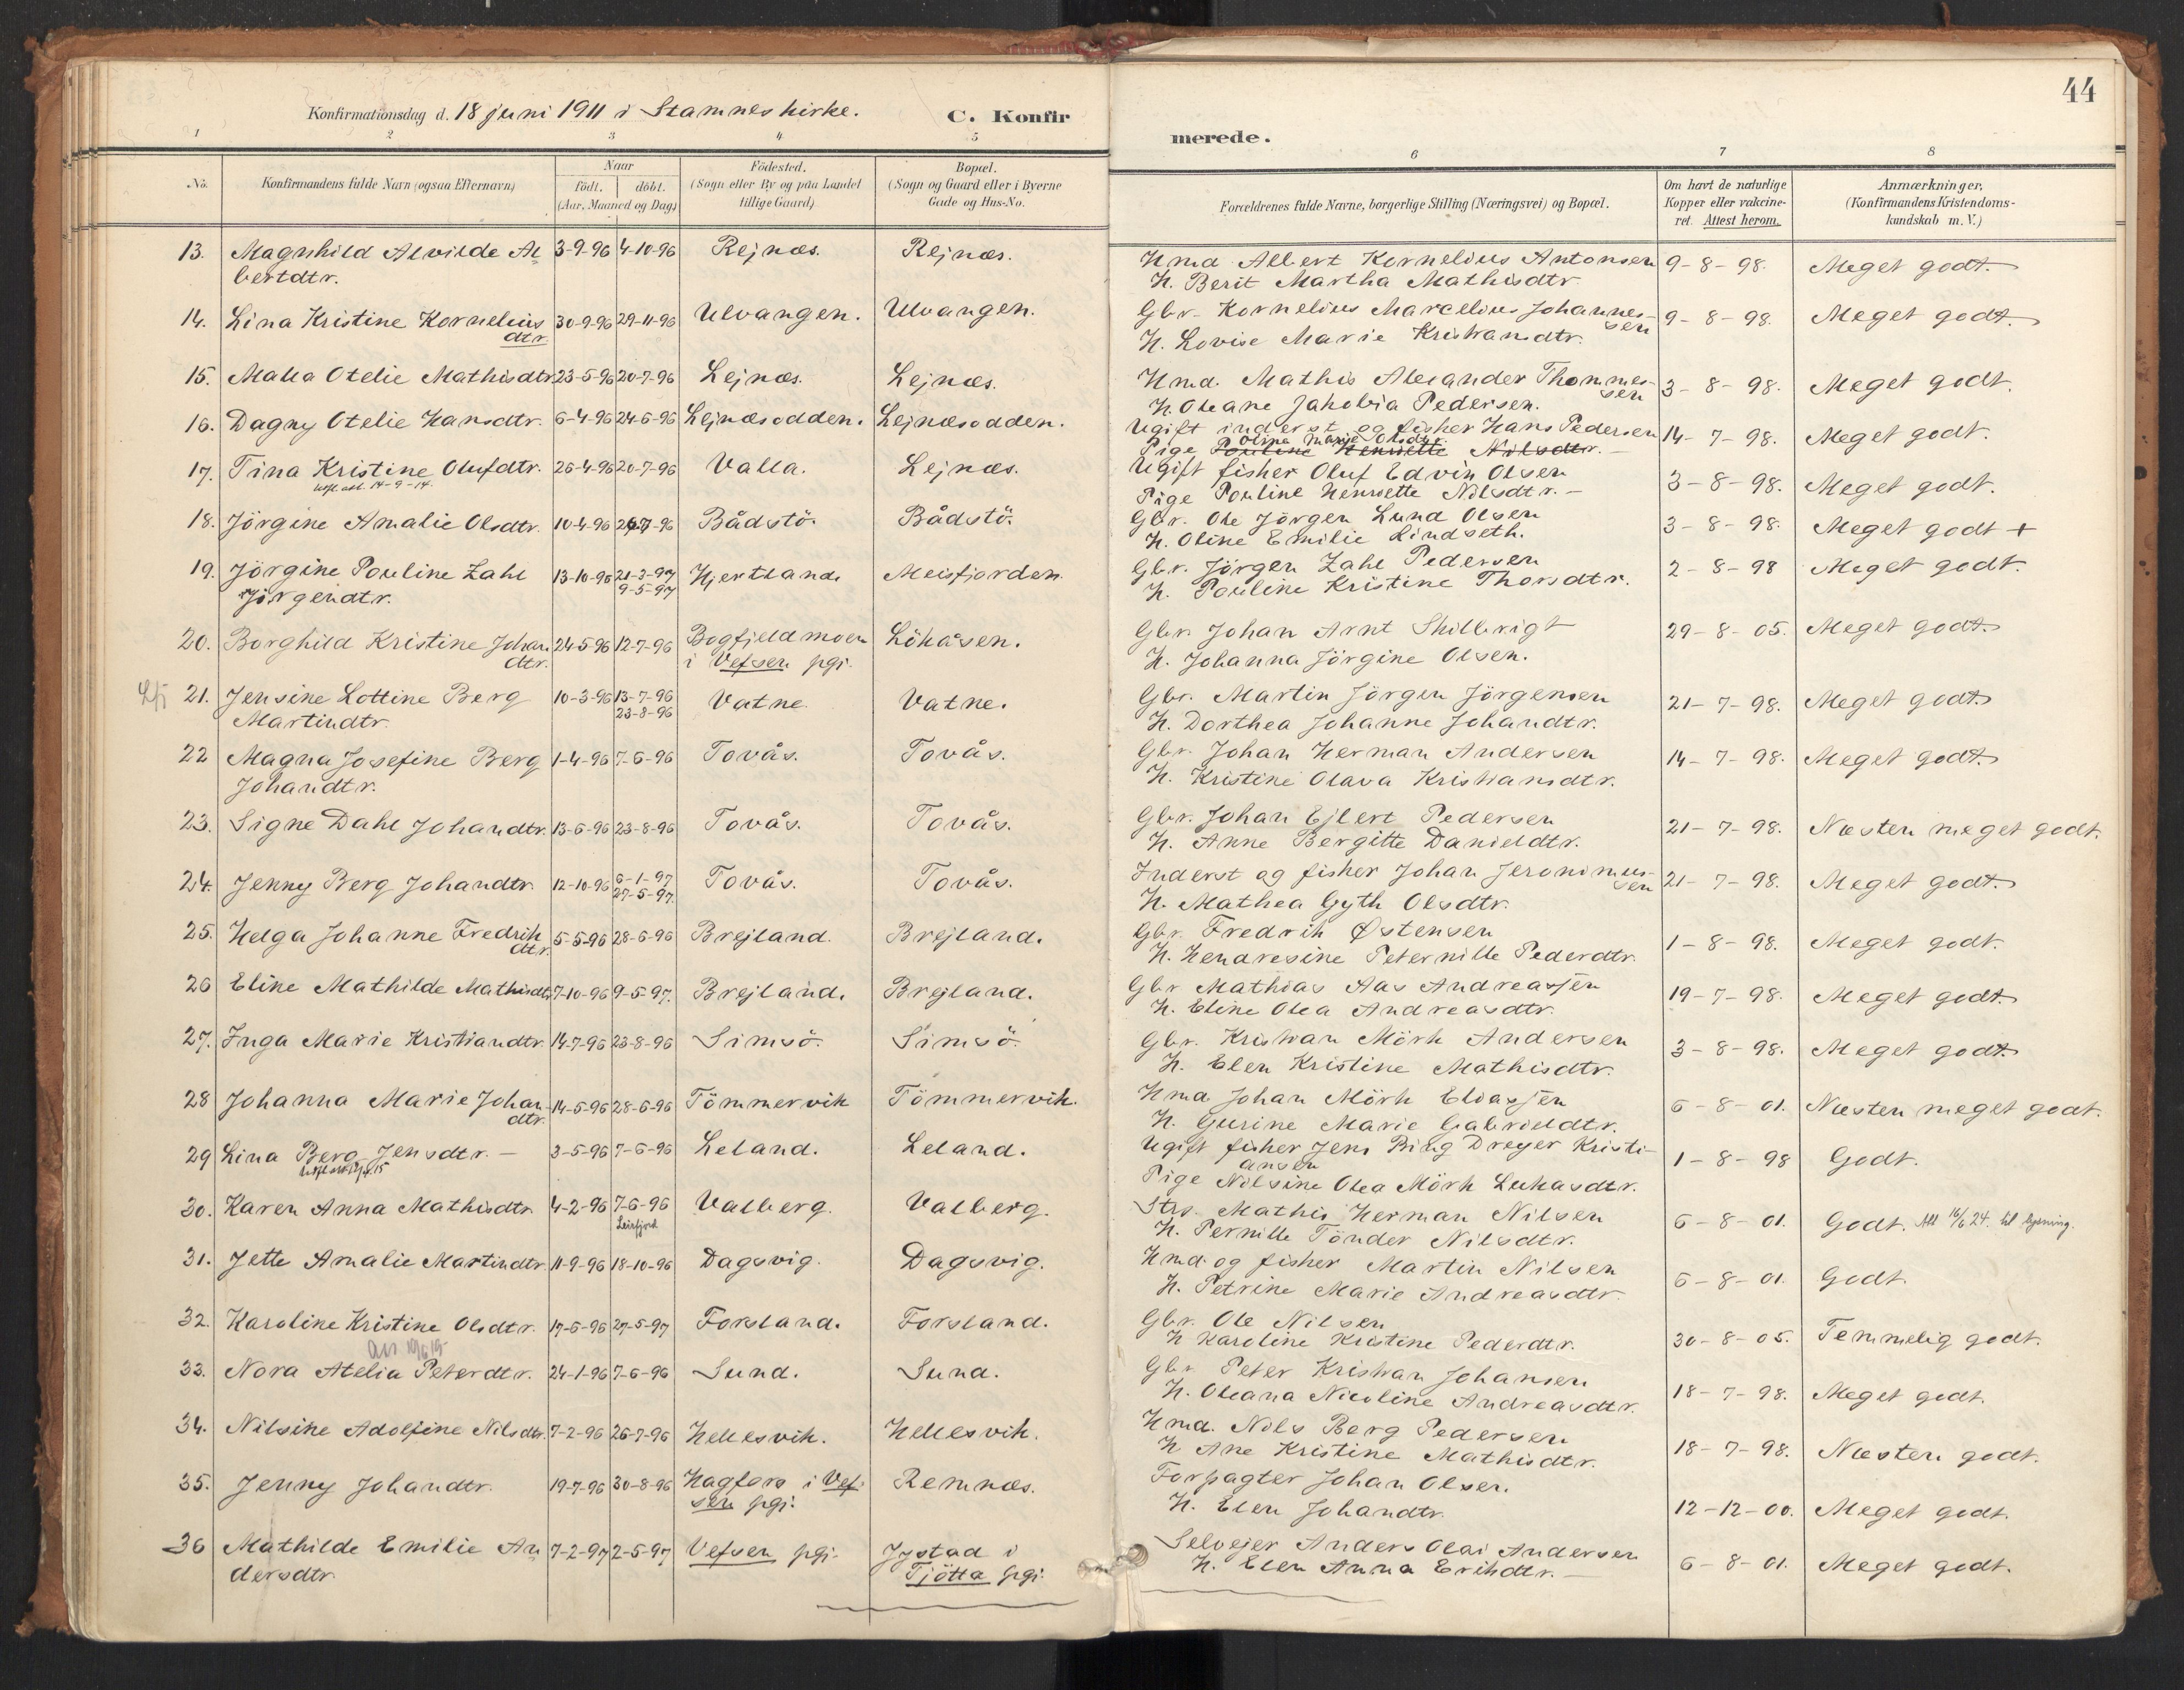 44
Konfirmationsdag d. 18 juni 1911 i Stamnes kirke. C. Konfirmerede.
1 2 3 4 5 6 7 8
No. Konfirmandens fulde Navn (ogsaa Efternavn) Naar født. døbt. (Aar, Maaned og Dag) Fødested. (Sogn eller By og paa Landet tillige Gaard) Bopæl. (Sogn og Gaard eller i Byerne Gade og Hus-No. Forældrenes fulde Navne, borgerlige Stilling (Næringsvei) og Bopæl. Om havt de naturlige Kopper eller vakcineret. Attest herom. Anmærkninger. (Konfirmandens Kristendomskundskab m. V.)
13. Magnhild Alvilde Al 3-9-96 4-10-96 Rejnæs. Rejnæs. Hmd Albert Kornelius Antonsen 9-8-98. Meget godt.
bertdtr. H. Berit Martha Mathisdtr
14. Lina Kristine Kornelius 30-9-96 29-11-96 Ulvangen. Ulvangen. Gbr. Kornelius Marcelius Johannes- 9-8-98. Meget godt.
dtr. sen
H. Lovise Marie Kristiansdtr.
15. Malla Otelie Mathisdtr 23-5-96 20-7-96 Lejnæs. Lejnæs. Hmd. Mathis Alexander Thommes- 3-8-98. Meget godt.
sen
H. Oleane Jakobia Pedersen.
16. Dagny Otelie Hansdtr. 6-4-96 24-6-96 Lejnæsodden. Lejnæsodden. Ugift inderst og fisker Hans Pedersen 14-7-98. Meget godt.
Oline Marie Olsdtr.
Pige Pouline Henriette Nilsdtr. —
17. Tina Kristine Olufdtr. 26-4-96 20-7-96 Valla. Lejnæs. Ugift fisker Oluf Edvin Olsen 3-8-98. Meget godt.
14-9-14. Pige Pouline Henriette Nilsdtr. —
18. Jörgine Amalie Olsdtr. 10-4-96 -7-96 Bådstö. Bådstö. Gbr. Ole Jörgen Lund Olsen 3-8-98. Meget godt +
H. Oline Emilie Lindseth.
19. Jörgine Pouline Zahl 13-10-96 21-3-97 Hjertland. Meisfjorden. Gbr. Jörgen Zahl Pedersen 2-8-98 Meget godt.
Jörgendtr. 9-5-97 H. Pouline Kristine Thorsdtr.
20. Borghild Kristine Johan 24-5-96 12-7-96 Bogfjeldmoen Lökåsen. Gbr. Johan Arnt Skilbrigt 29-8-05. Meget godt.
dtr. i Vefsen pgj. H. Johanna Jörgine Olsen.
Lfj 21. Jensine Lottine Berg 10-3-96 13-7-96 Vatne. Vatne. Gbr. Martin Jörgen Jörgensen 21-7-98. Meget godt.
Martindtr. 23-8-96 H. Dorthea Johanne Johandtr.
22 Magna Josefine Berg 1-4-96 7-6-96 Tovås. Tovås. Gbr. Johan Herman Andersen 14-7-98. Meget godt.
Johandtr. H. Kristine Olava Kristiansdtr.
23. Signe Dahl Johandtr. 13-6-96 23-8-96 Tovås. Tovås. Gbr. Johan Ejlert Pedersen 21-7-98. Næsten meget godt.
H. Anne Bergitte Danieldtr.
24. Jenny Berg Johandtr. 12-10-96 6-1-97 Tovås. Tovås. Inderst og fisker Johan Jeronimus- 21-7-98. Meget godt.
27-5-97. sen
H. Mathea Gyth Olsdtr.
25. Helga Johanne Fredrik 5-5-96 28-6-96 Brejland. Brejland. Gbr. Fredrik Østensen 1-8-98. Meget godt.
dtr. H. Hendresine Peternille Pederdtr.
26 Eline Mathilde Mathisdtr 7-10-96 9-5-97. Brejland. Brejland. Gbr Mathias Aas Andreasjen 19-7-98. Meget godt.
H. Eline Olea Andreasdtr.
27. Inga Marie Kristiandtr. 14-7-96 23-8-96 Simsö. Simsö. Gbr. Kristian Mörk Andersen 3-8-98. Meget godt.
H. Elen Kristine Mathisdtr.
28 Johanna Marie Johan- 14-5-96 28-6-96 Tömmervik Tömmervik. Hmd Johan Mörk Eliasjen 6-8-01. Næsten meget godt.
dtr. H. Gurine Marie Gabrieldtr.
29 Lina Berg Jensdtr. — 3-5-96 7-6-96 Leland. Leland. Ugift fisker Jens Bing Dreyer Kristi- 1-8-98 Godt.
ansen
Pige Nilsine Olea Mörk Lukasdtr.
30. Karen Anna Mathisdtr. 4-2-96 7-6-96 Valberg. Valberg. Strs. Mathis Herman Nilsen 6-8-01. Godt. Att 16/6 24. til lysning.
Leirfjord H. Pernille Tönder Nilsdtr.
31. Jette Amalie Martindtr. 11-9-96 18-10-96 Dagsvig. Dagsvig. Hmd. og fisker Martin Nilsen 6-8-01. Godt.
H. Petrine Marie Andreasdtr.
32. Karoline Kristine Olsdtr. 17-6-96 27-5-97 Forsland. Forsland. Gbr. Ole Nilsen 30-8-05. Temmelig godt.
H Karoline Kristine Pederdtr.
33. Nora Atelia Peterdtr. 24-1-96 7-6-96 Sund. Sund. Gbr. Peter Kristian Johansen 18-7-98. Meget godt.
H. Oleana Nicoline Andreasdtr.
34. Nilsine Adolfine Nilsdtr. 7-2-96 26-7-96 Hellesvik. Hellesvik. Hmd. Nils Berg Pedersen 18-7-98. Næsten godt.
H Ane Kristine Mathisdtr.
35. Jenny Johandtr. 19-7-96 30-8-96 Hagfors i Vef- Remnæs. Forpagter Johan Olsen. 12-12-00. Meget godt.
sen pgj. H. Elen Johandtr.
36 Mathilde Emilie An 7-2-97 2-5-97 Vefsen pgj. Jystad i Selvejer Anders Olai Andersen 6-8-01. Meget godt.
dersdtr. Tjötta pgj. H. Elen Anna Erikdtr. —